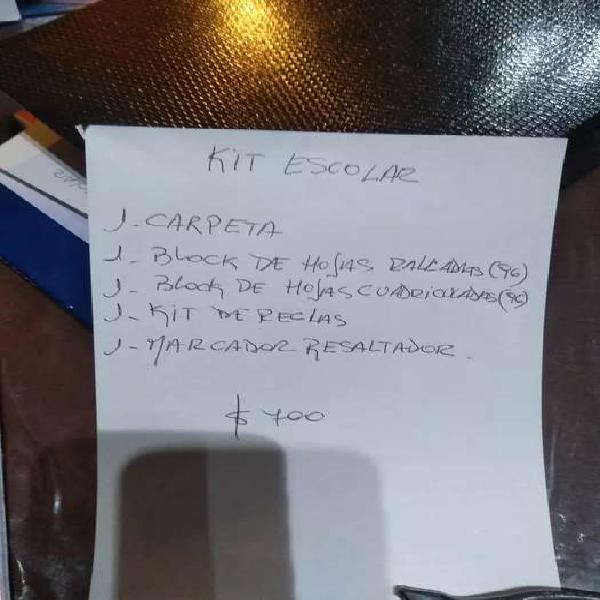 KIT ESCOLAR
1- CARPETA
1- BLOCK DE HOJAS RALLADAS (96)
1- BLOCK DE HOJAS CUADRICULADAS (96)
1- KIT DE REGLAS
1- MARCADOR RESALTADOR.
$ 700